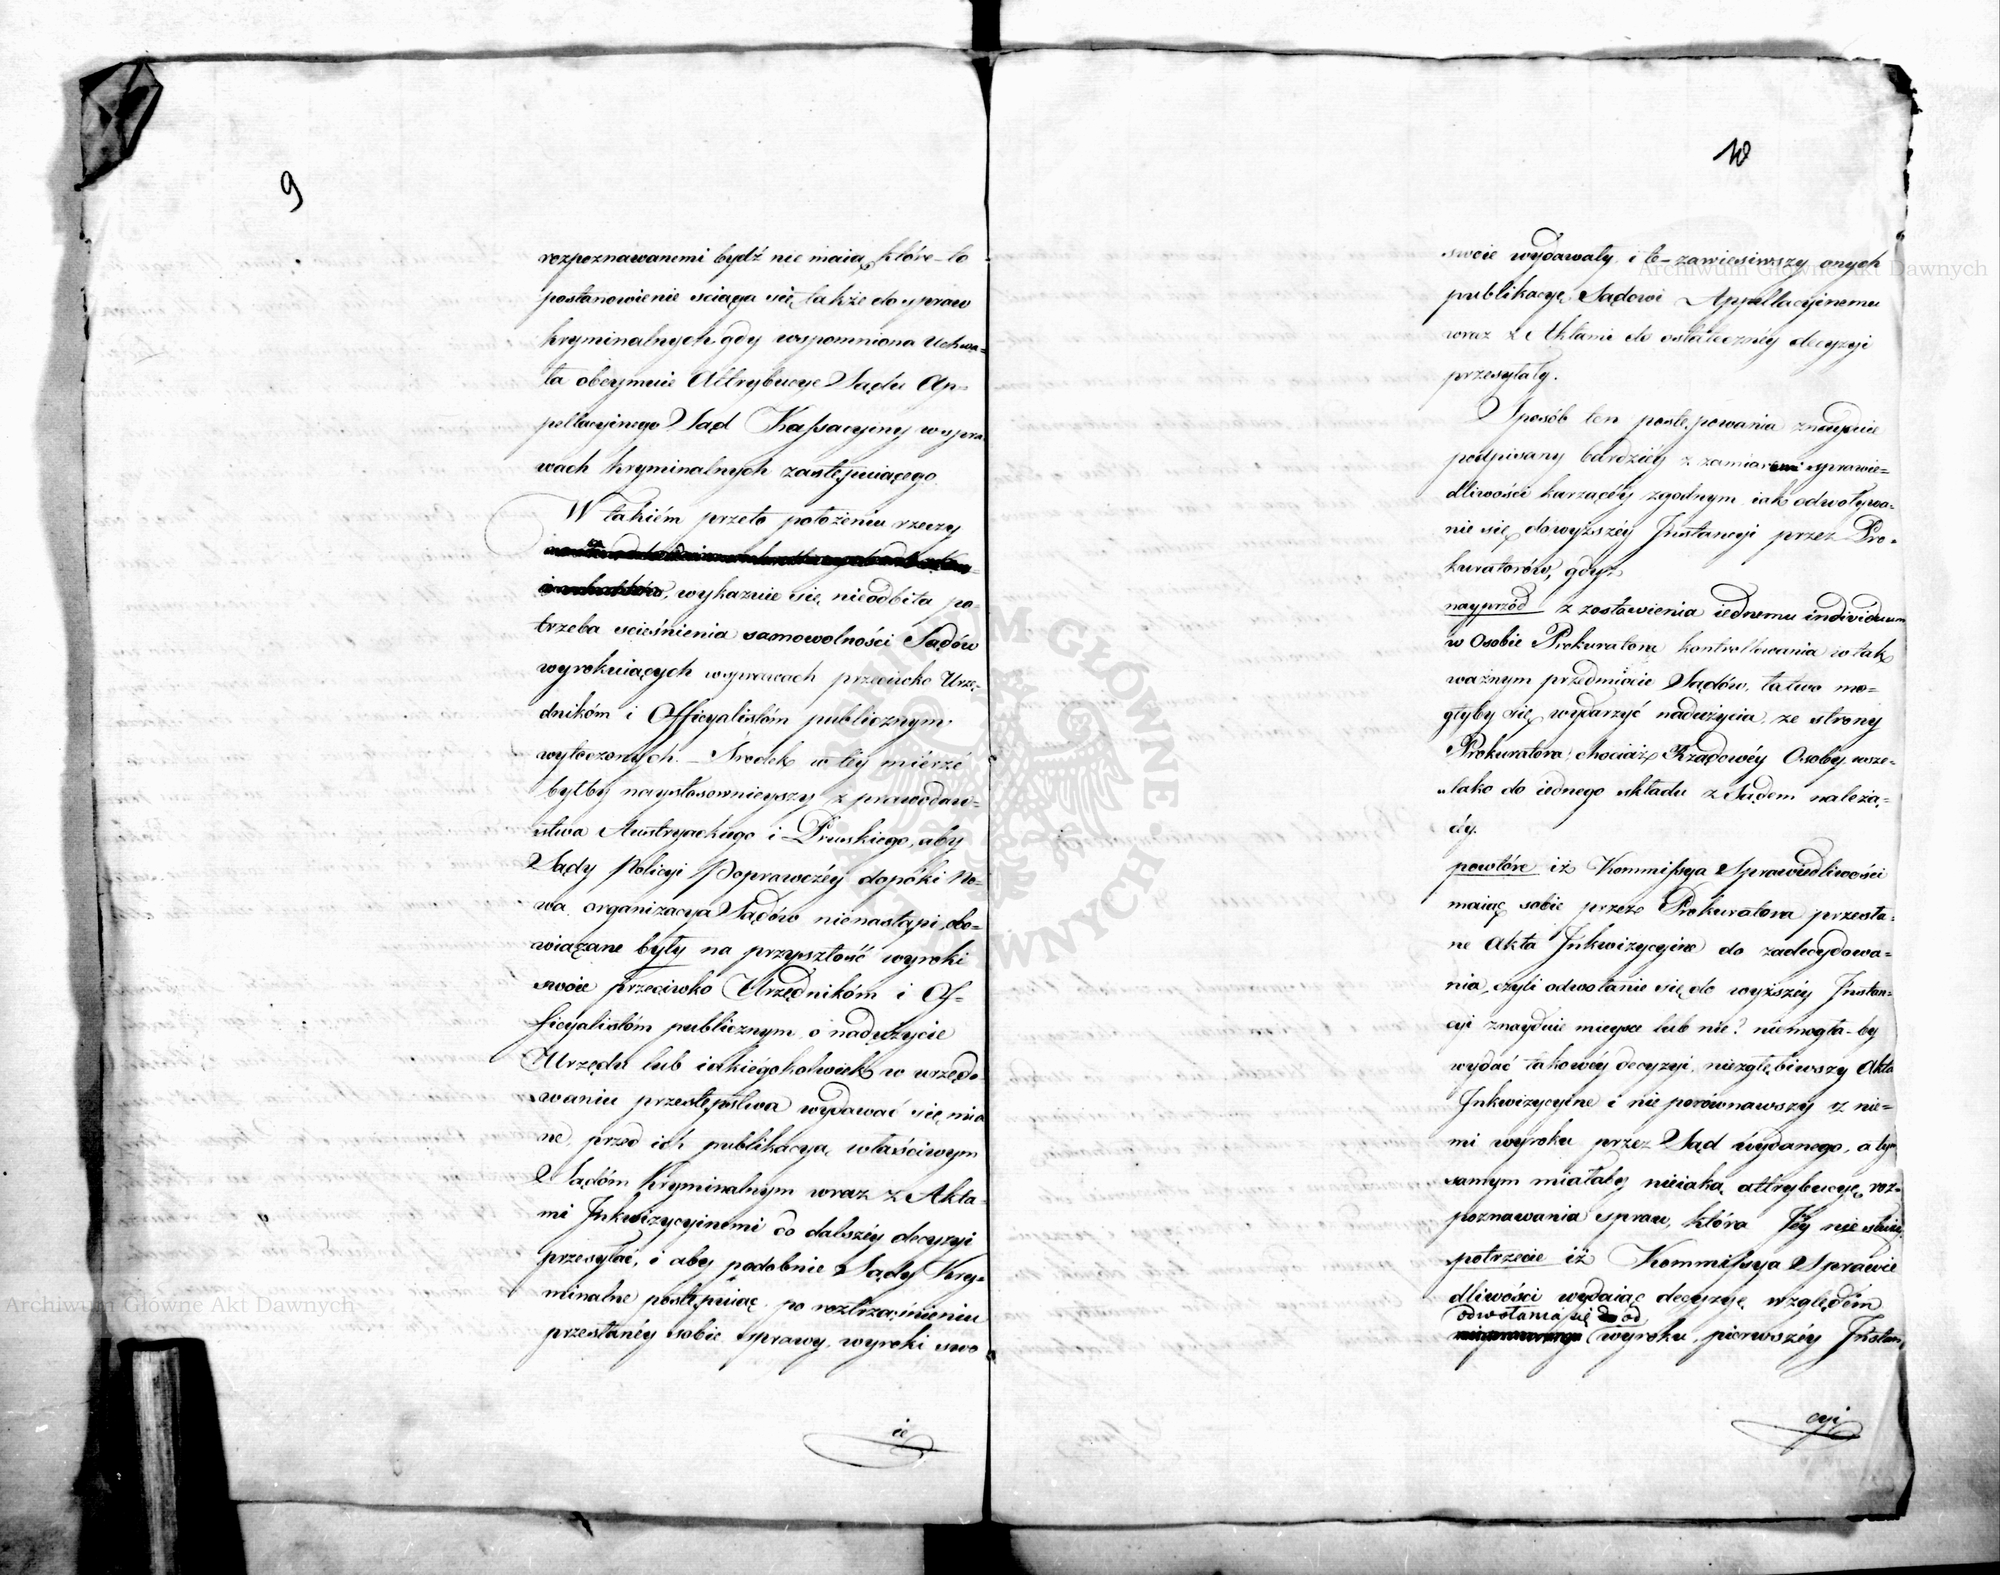 9
rozpoznawanemi bydź nie maią, które-to
postanowienie sciąga się także do spraw
kryminalnych gdy wspomniona Uchwa=
ła obeymuie Attrybucye Sądu Ap=
pellacyinego Sąd Kassacyiny w spra=
wach kryminalnych zastępuiącego.
W takiém przeto położeniu rzeczy
wykazuie się nieodbita po=
trzeba ścieśnienia samowolności Sądów
wyrokuiących w sprawach przeciwko Urzę=
dnikóm i Officyalistóm publicznym
wytoczonych. – Środek w téy mierze
byłby naystosownieyszy z prawodaw=
stwa Austryackiego i Pruskiego, aby
Sądy Policyi Poprawczéy dopóki No=
wa organizacya Sądów nienastąpi, obo=
wiązane były na przyszłość wyroki
swoie przeciwko Urzędnikóm i Of=
ficyalistóm publicznym o nadużycie
Urzędu lub iakiegokolwiek w urzędo=
waniu przestępstwa wydawać się maia
ne, przed ich publikacyą właściwym
Sądóm Kryminalnym wraz z Akta=
mi Inkwizycyinemi do dalszéy decyzyi
przesyłać, i aby podobnie Sądy Kry=
minalne postępuiąc po roztrząśnieniu
przesłanéy sobie sprawy, wyroki swo
ie
10
swoie wydawały i te-zawiesiwszy onych
publikacyę Sądowi Appellacyinemu
wraz z Aktami do ostatecznéy decyzyi
przesyłały.
Sposób ten postępowania znayduie
podpisany bardziéy z zamiarem sprawie=
dliwości karzącéy zgodnym iak odwoływa=
nie się do wyższéy Instancyi przez Pro=
kuratorów, gdyż
nayprzód z zostawienia iednemu individuum
w Osobie Prokuratora kontrollowania w tak
ważnym przedmiocie Sądów, łatwo mo=
głyby się wydarzyć nadużycia ze strony
Prokuratora, chociaż Rządowéy Osoby, wsze=
lako do iednego składu z Sądem należą=
céy.
powtóre iż Kommissya Sprawiedliwości
maiąc sobie przez Prokuratora przesła=
ne Akta Inkwizycyine do zadecydowa=
nia, czyli odwołanie się do wyższéy Instan=
cyi znayduie mieysce lub nie? niemogła-by
wydać takowéy decyzyi, niezgłębiwszy Akta
Inkwizycyine i nie porównawszy z nie=
mi wyroku przez Sąd wydanego, a tym
samym miałaby nieiaką attrybucyę roz=
poznawania spraw, która Jéy nie służy.
potrzecie iż Kommissya Sprawie
dliwości wydaiąc decyzyę względem
odwołania się od
wyroku pierwszéy Instan=
cyi
Archiwum Główne Akt Dawnych
Archiwum Główne Akt Dawnych
ARCHIWUM GŁÓWNE AKT DAWNYCH